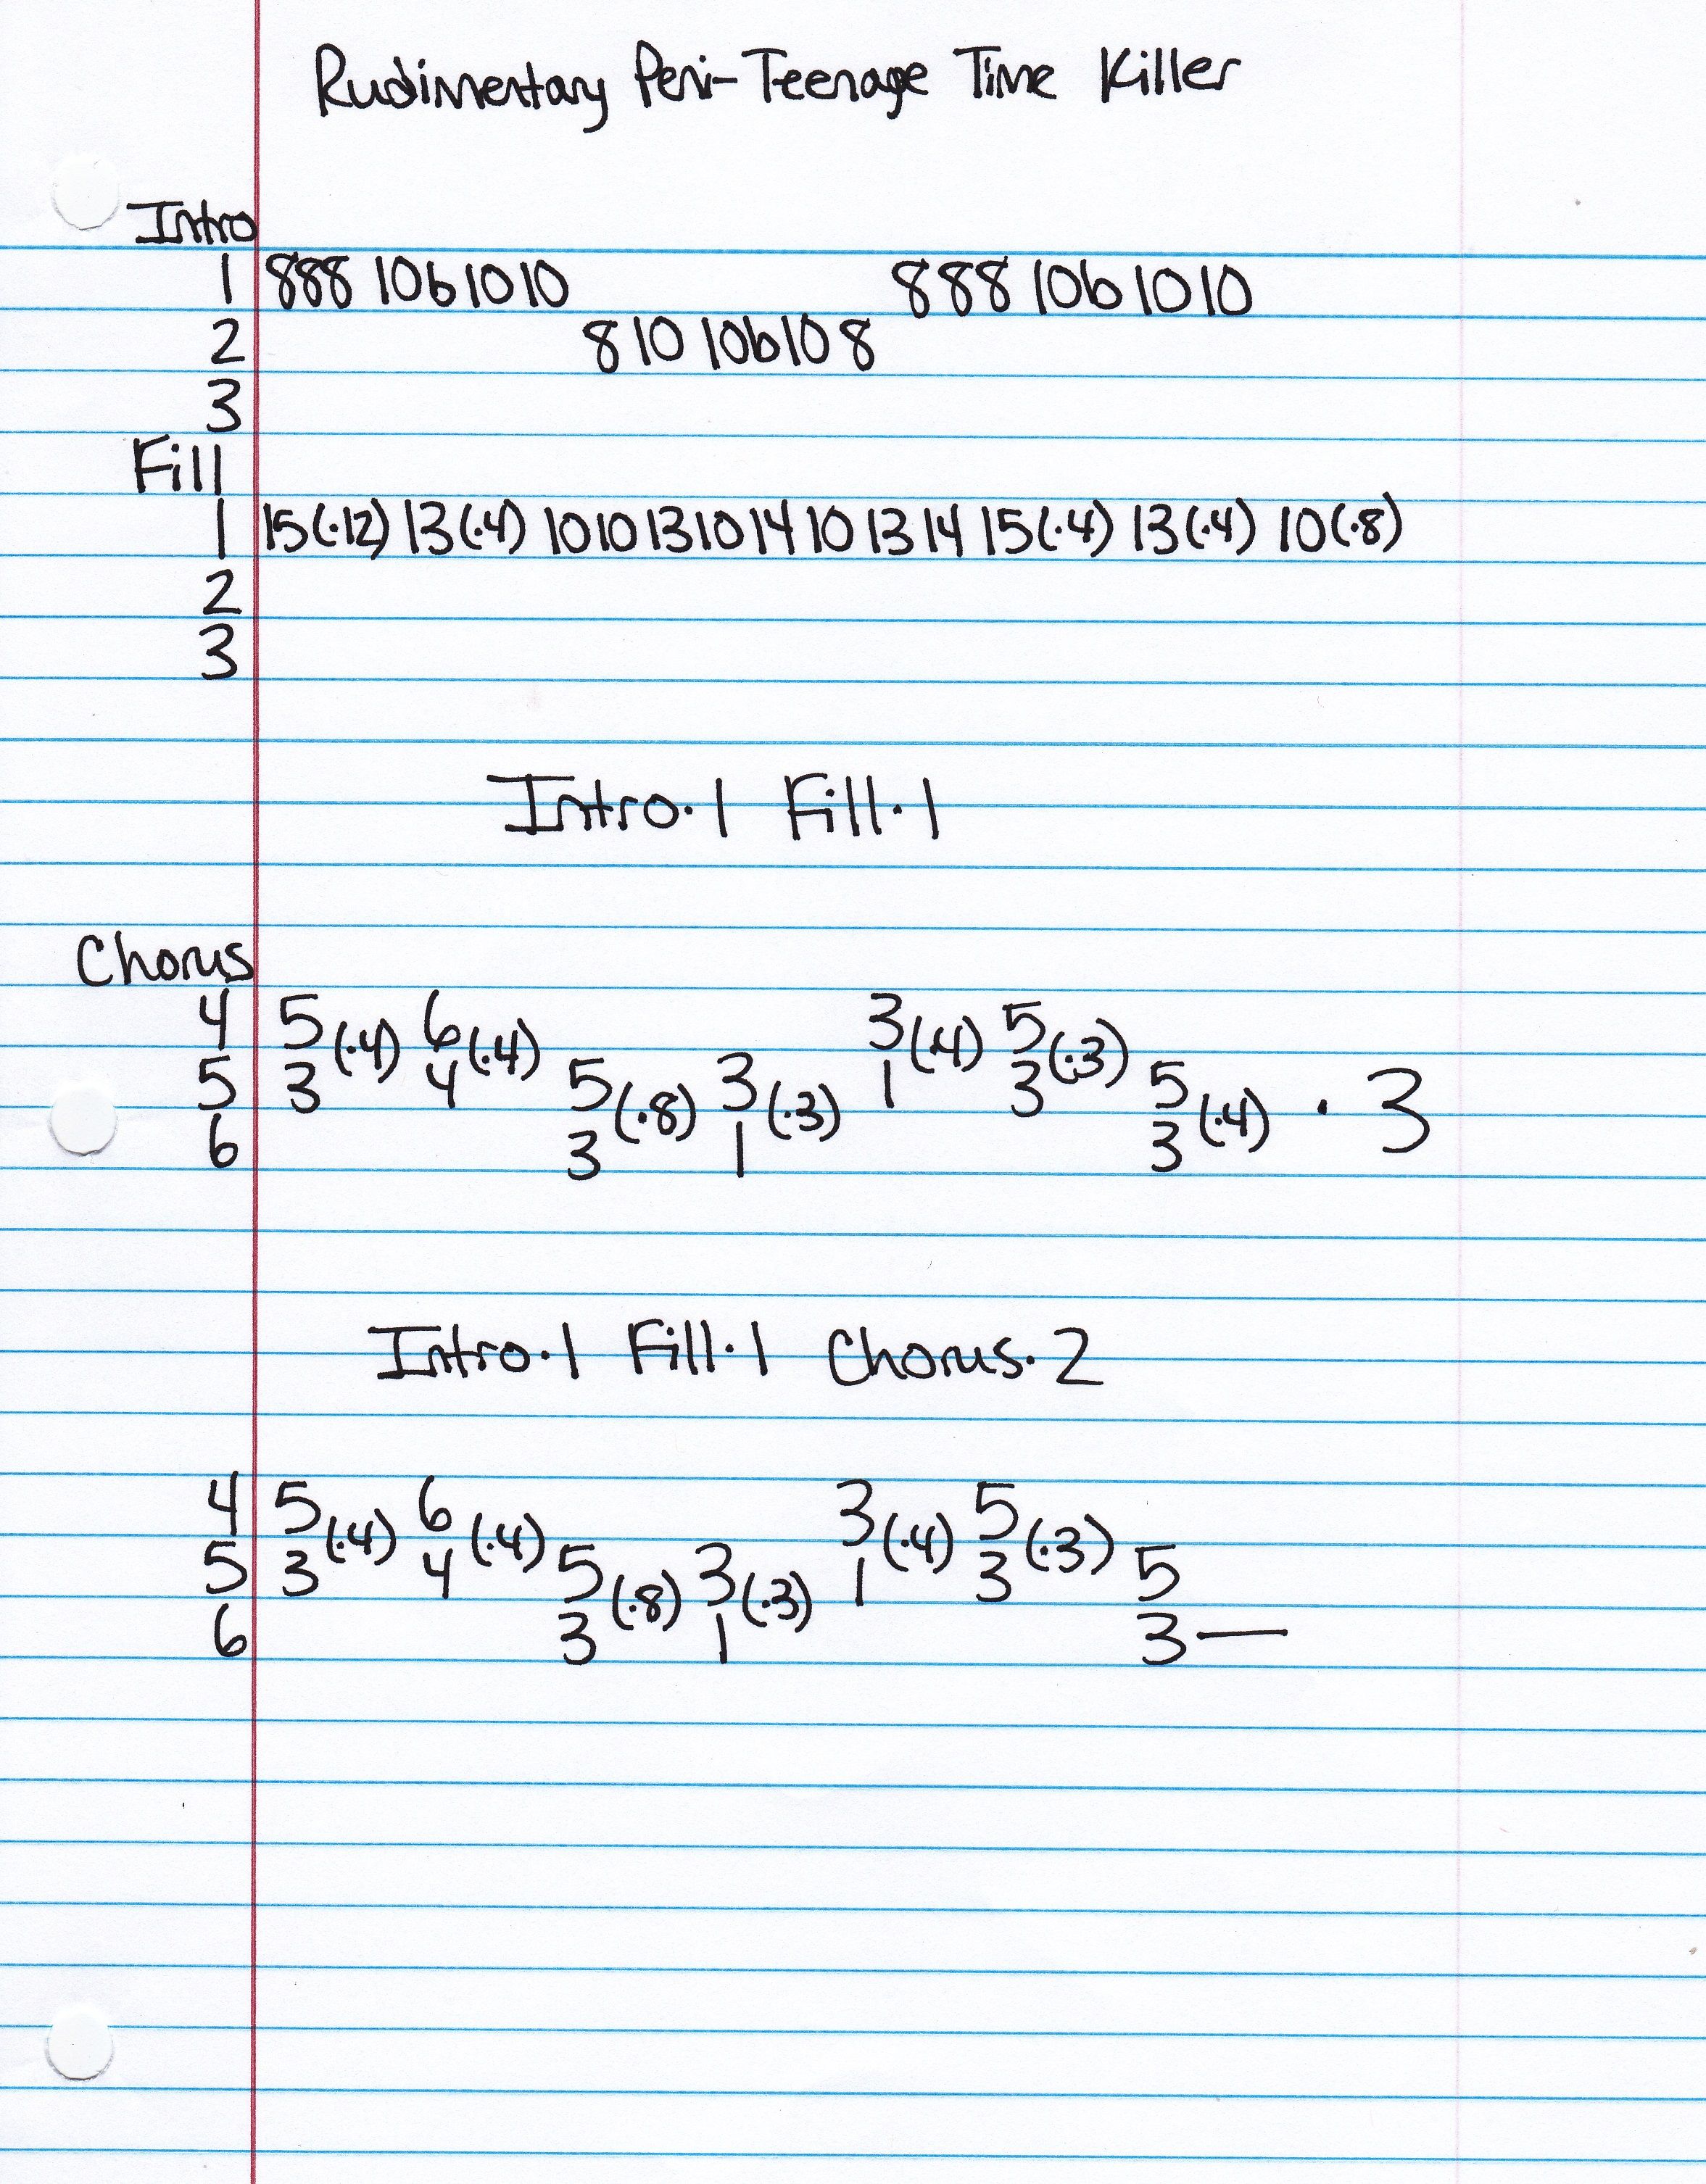 Rudimentary Peni-Teenage Time Killer
Intro
1 888 10b1010 888 10b 1010
2 810 10b10 8
3
Fill
1 15(·12) 13(·4) 10 10 13 10 14 10 13 14 15(·4) 13(·4) 10(·8)
2
3
Intro·1 Fill·1
Chorus
4 5(·4) 6(·4) 3(·4) 5(·3)
5 3 4 5(·8) 3(·3) 1 3 5(·4) · 3
6 3 1 3
Intro·1 Fill·1 Chorus·2
4 5(·4) 6(·4) 3(·4) 5(·3)
5 3 4 5(·8) 3(·3) 1 3 5
6 3 1 3—